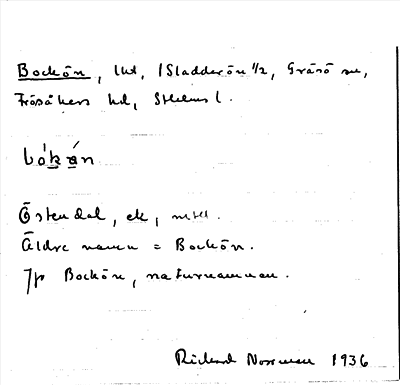 Bockön, lht, /Sladderön 1/2, Gräsö sn,
Frösåkers hd, Sthlms l.
bókán
Östendal, ek, mtrl.
Äldre namn = Bockön.
Jfr Bockön, naturnamnen.
Rickard Norrman 1936